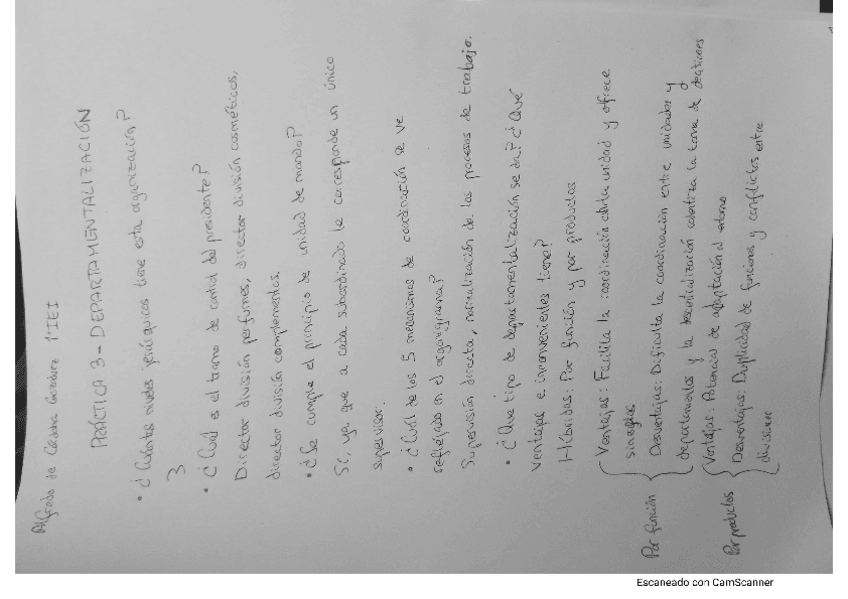 Alfredo de Córdoba González 1ºIEI
PRÁCTICA 3 - DEPARTAMENTALIZACIÓN
• ¿Cuántos niveles jerárquicos tiene esta organización?
3
• ¿Cuál es el tramo de control del presidente?
Director división perfumes, director división cosméticos,
director división complementos.
• ¿Se cumple el principio de unidad de mando?
Sí, ya que a cada subordinado le corresponde un único
supervisor.
• ¿Cuál de los 5 mecanismos de coordinación se ve
reflejado en el organigrama?
Supervisión directa, normalización de los procesos de trabajo.
• ¿Qué tipo de departamentalización se da? ¿Qué
ventajas e inconvenientes tiene?
Híbridas: Por función y por productos
Por función
Ventajas: Facilita la coordinación de la unidad y ofrece
sinergias
Desventajas: Dificulta la coordinación entre unidades y
departamentos y la descentralización ralentiza la toma de decisiones
Por productos
Ventajas: Potencial de adaptación al entorno
Desventajas: Duplicidad de funciones y conflictos entre
divisiones
Escaneado con CamScanner